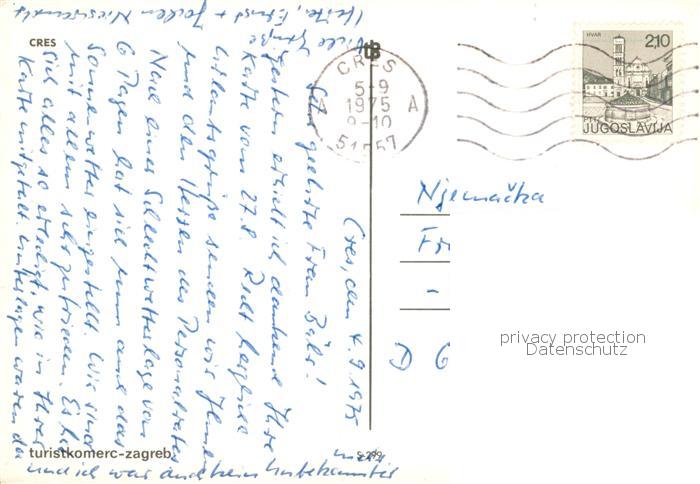 CRES
Cres, den 4.9.1975
Sehr geehrte Frau Bals!
gestern erhielt ich dankend Ihre
Karte vom 27.8. Recht herzliche
Urlaubsgrüße senden wir Ihnen
und den Herren des Personalrates
Nach einer Schlechtwetterlage von
6 Tagen hat sich nun auch das
Sonnenwetter eingestellt. Wir sind
mit allem sehr zufrieden. Es hat
sich alles so erledigt, wie in Ihrer
Karte mitgeteilt. Unterlagen waren da
und ich war auch kein Unbekannter
mehr
Viele Grüße
Ernst +
turistkomerc-zagreb
S-299
CRES
5-9
1975
A A
8-10
51557
HVAR
2,10
PTT
JUGOSLAVIJA
Njemačka
Fr
-
D 6
privacy protection
Datenschutz